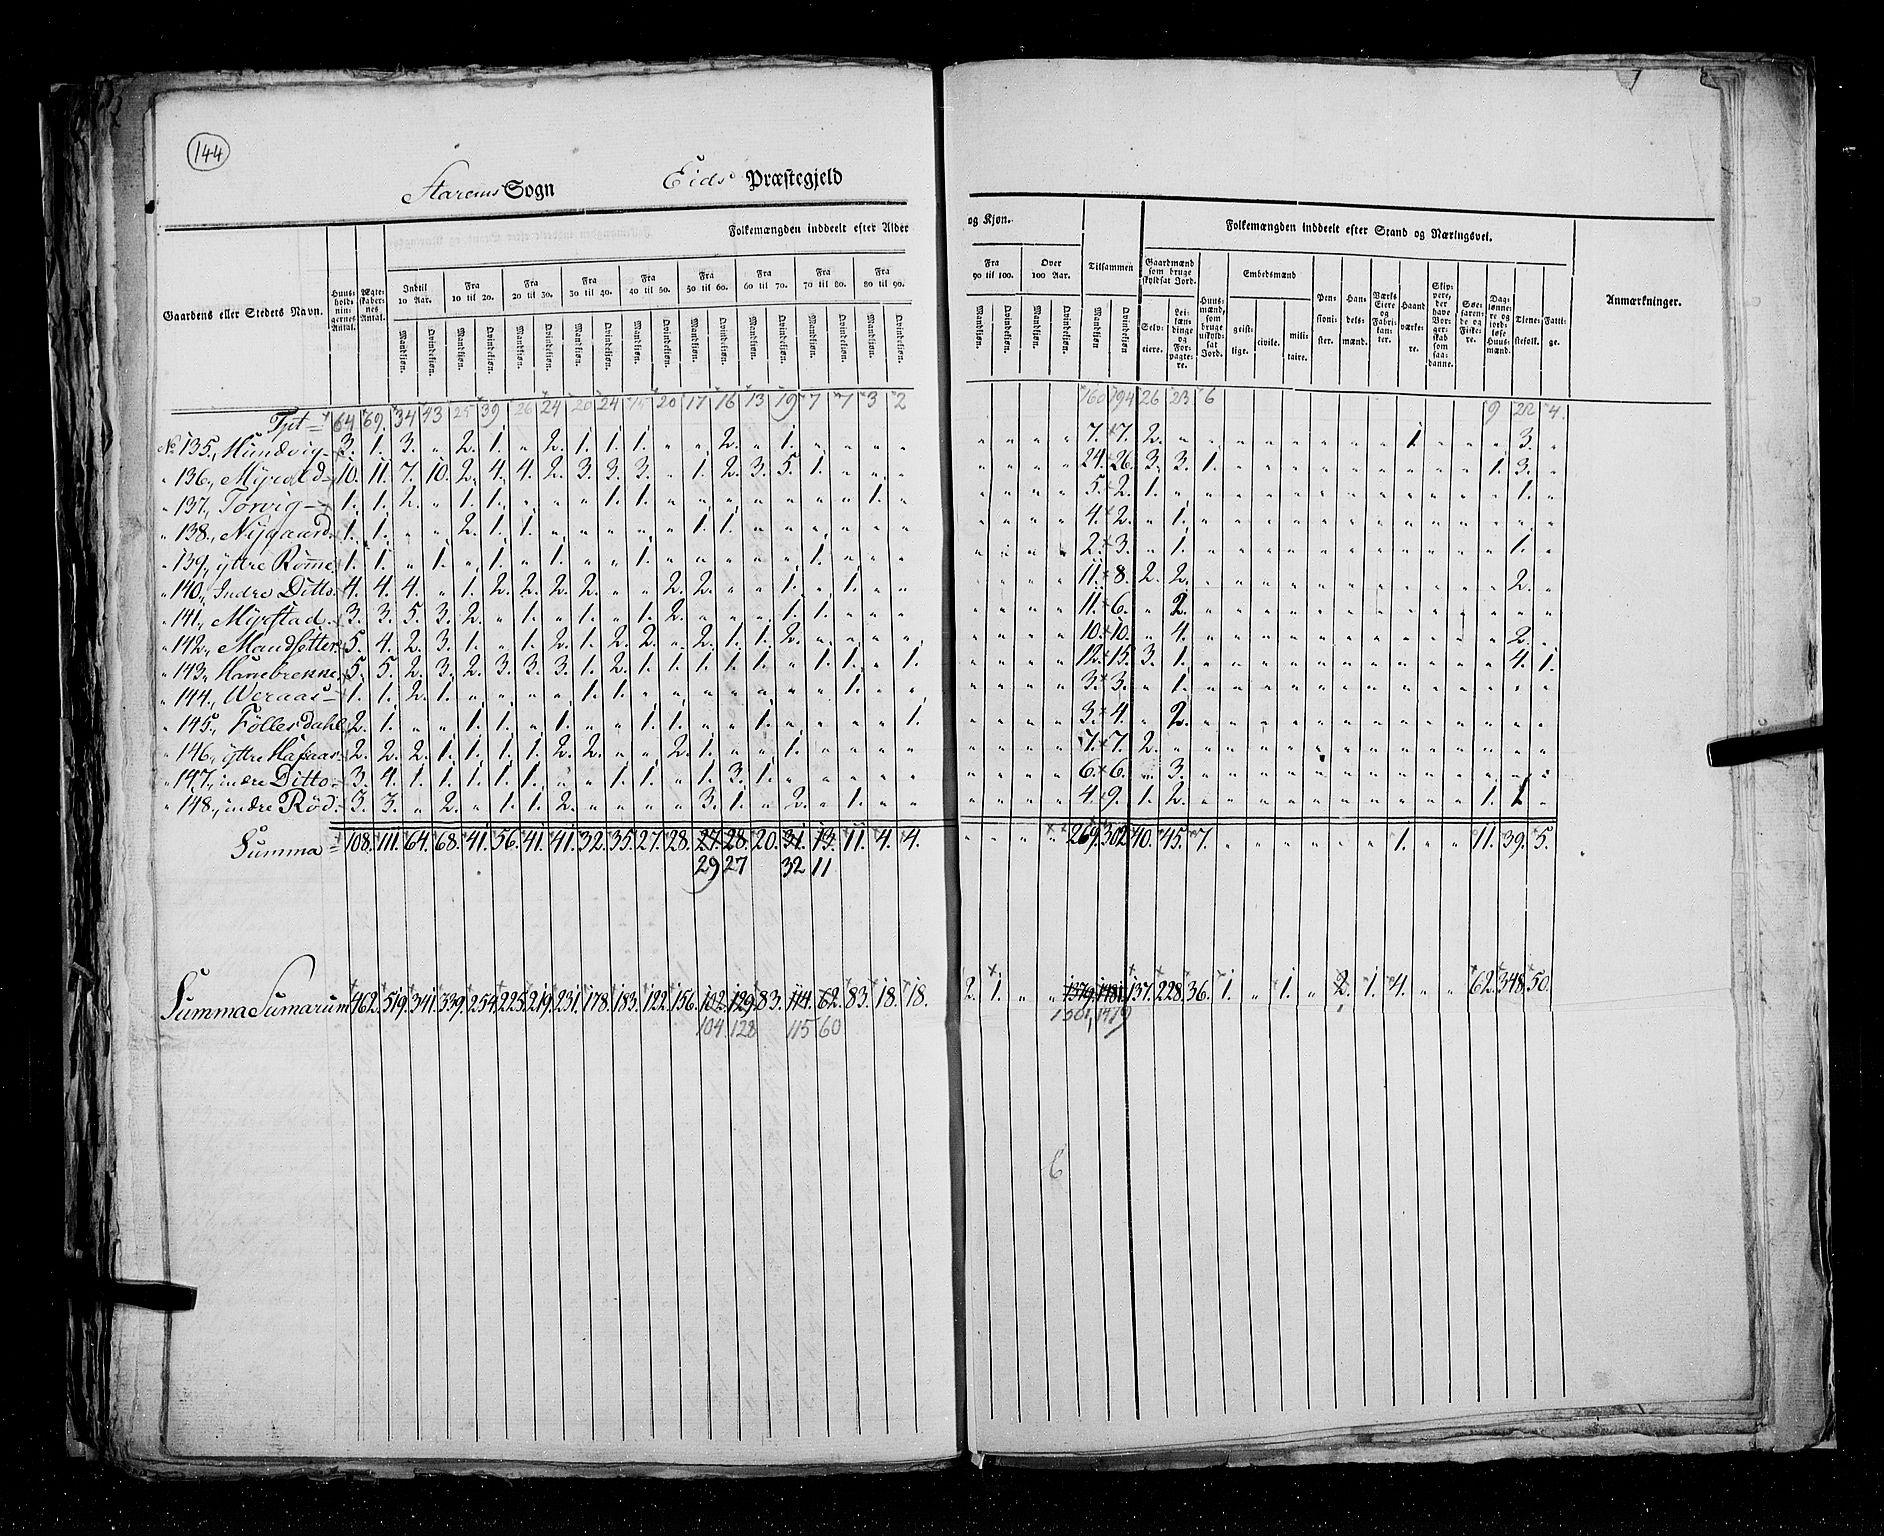 144
Starems Sogn Eids Præstegjeld
Gaardens eller Stedets Navn. Huus-holdnin-gernes Antal. Ægte-skaber-nes Antal. Folkemængden inddeelt efter Alder og Kjøn. Tilsammen Folkemængden inddeelt efter Stand og Næringsvei. Anmærkninger.
Indtil 10 Aar. Fra 10 til 20. Fra 20 til 30. Fra 30 til 40. Fra 40 til 50. Fra 50 til 60. Fra 60 til 70. Fra 70 til 80. Fra 80 til 90. Fra 90 til 100. Over 100 Aar. Gaardmænd som bruge skyldsat Jord. Huus-mænd, som bruge uskyld-sat Jord. Embedsmænd Pen-sioni-ster. Han-dels-mænd. Værks Eiere og Fabri-kanter. Haand værke-re. Skip-pere, der have Bor-ger-skab som saa-danne. Søe-farende og Fiske-re. Dag-lønne-re og jord-løse Huus-mænd. Tjene-stefolk. Fatti-ge.
Mandkiøn. Qvindekiøn. Mandkiøn. Qvindekiøn. Mandkiøn. Qvindekiøn. Mandkiøn. Qvindekiøn. Mandkiøn. Qvindekiøn. Mandkiøn. Qvindekiøn. Mandkiøn. Qvindekiøn. Mandkiøn. Qvindekiøn. Mandkiøn. Qvindekiøn. Mandkiøn. Qvindekiøn. Mandkiøn. Qvindekiøn. Mandkiøn Qvindekiøn Selv-eiere. Lei-læn-dinge og For-pagte-re. geist-lige. civile. mili-taire.
Tpt 64 69. 34 43 25 39 26 24 20 24 15 20 17 16 13 19 7 7 3 2 160 194 26 23 6 9 22 4.
No. 135., Hundvig 3. 1. 3. „ 2. 1. „ 2. 1. 1. 1. „ „ 2. „ 1. „ „ „ „ „ „ „ „ 7. 7. 2. „ „ „ „ „ „ „ „ 1. „ „ „ 3. „
„ 136., Myrold 10. 11. 7. 10. 2. 4. 4. 2. 3. 3. 3. „ 1. 2. 3. 5. 1. „ „ „ „ „ „ „ 24. 26. 3. 3. 1. „ „ „ „ „ „ „ „ „ 1. 3. „
„ 137., Torvig 1. 1. 2. „ 1. 1. „ „ „ 1. 1. „ „ „ „ „ „ „ 1. „ „ „ „ „ 5. 2. 1. „ „ „ „ „ „ „ „ „ „ „ „ 1. „
„ 138., Nygaard 1. 1. „ „ 2. 1. 1. „ „ „ „ „ 1. 1. „ „ „ „ „ „ „ „ „ „ 4. 2. „ 1. „ „ „ „ „ „ „ „ „ „ „ „ „
„ 139., yttre Rome 1. 1. „ 1. „ 1. „ 1. „ „ 1. „ „ „ „ „ 1. „ „ „ „ „ „ „ 2. 3. „ 1. „ „ „ „ „ „ „ „ „ „ „ 1. „
„ 140., Indre Ditto 4. 4. 4. „ 1. 2. 2. 2. 2. „ „ 2. 2. „ „ 1. „ 1. „ „ „ „ „ „ 11. 8. 2. 2. „ „ „ „ „ „ „ „ „ „ „ 2. „
„ 141., Myrstad 3. 3. 5. 3. 2. „ 1. „ 1. „ 1. 2. „ „ „ 1. 1. „ „ „ „ „ „ „ 11. 6. „ 2. „ „ „ „ „ „ „ „ „ „ „ „ „
„ 142., Maudsetter 5. 4. 2. 3. 1. „ 1. 2. 1. 2. 2. „ 2. 1. 1. 2. „ „ „ „ „ „ „ „ 10. 10. „ 4. „ „ „ „ „ „ „ „ „ „ „ 2. „
„ 143., Hanebrekke 5. 5. 2. 3. 2. 3. 3. 3. 1. 2. 1. 1. 1. 1. 1. „ 1. 1. „ 1. „ „ „ „ 12. 15. 3. 1. „ „ „ „ „ „ „ „ „ „ „ 4. 1.
„ 144., Weraas 1. 1. 2. 1. „ „ „ „ 1. 1. „ „ „ „ „ „ „ 1. „ „ „ „ „ „ 3. 3. „ 1. „ „ „ „ „ „ „ „ „ „ „ „ „
„ 145., Föllesdahl 2. 1. „ „ 1. 1. „ 1. „ „ 1. 1. „ „ 1. „ „ „ „ 1. „ „ „ „ 3. 4. „ 2. „ „ „ „ „ „ „ „ „ „ „ „ „
„ 146., yttre Hafaas 2. 2. 2. 1. 1. 1. 1. 2. 2. „ „ 2. 1. „ „ 1. „ „ „ „ „ „ „ „ 7. 7. 2. „ „ „ „ „ „ „ „ „ „ „ „ „ „
„ 147., indre Ditto 3. 4. 1. 1. 1. 1. 1. „ „ 1. 1. „ 1. 3. 1. „ „ „ „ „ „ „ „ „ 6. 6. „ 3. „ „ „ „ „ „ „ „ „ „ „ „ „
„ 148., indre Röd 3. 3. „ 2. „ 1. 1. 2. „ „ „ „ 3. 1. „ 2. „ 1. „ „ „ „ „ „ 4. 9. 1. 2. „ „ „ „ „ „ „ „ „ „ 1. 1 „
Summa 108. 111. 64. 68. 41. 56. 41. 41. 32. 35. 27. 28. 27. 28. 20. 31. 13. 11. 4. 4. „ „ „ „ 269. 302. 40. 45. 7. „ „ „ „ „ „ 1. „ „ 11. 39. 5.
29 27 32 11
Summa Sumarum 462. 519. 341. 339. 254. 225. 219. 231. 178. 183. 122. 156. 102. 129. 83. 114. 62. 83. 18. 18. 2. 1. „ „ 1379. 1481. 137. 228. 36. 1. „ 1. „ 2. 1. 4. „ „ 62. 348. 50.
104 128 115 60 1381 1479
6